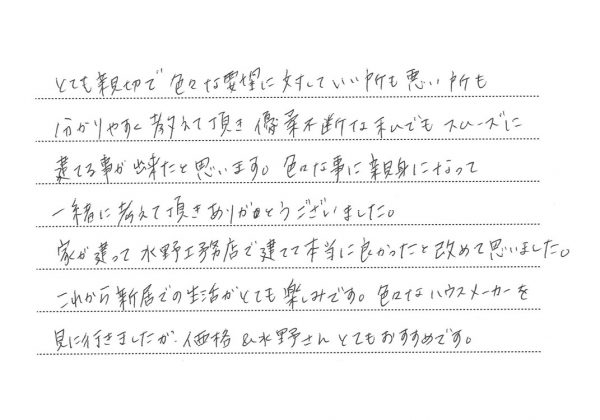 とても親切で 色々な要望に対していい所も悪い所も
分かりやすく 教えて頂き 優柔不断な私でも スムーズに
建てる事が出来たと思います。色々な事に親身になって
一緒に考えて頂きありがとうございました。
家が建って 水野工務店で建てて本当に良かったと改めて思いました。
これから新居での生活がとても楽しみです。色々なハウスメーカーを
見に行きましたが、価格&水野さん とてもおすすめです。